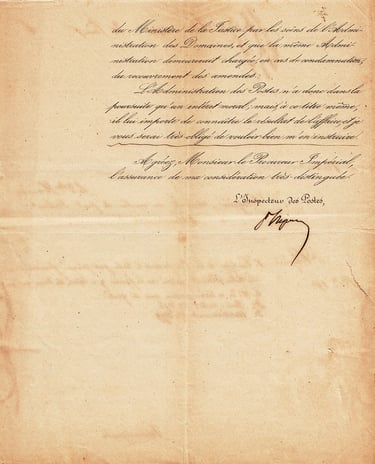 du Ministère de la Justice par les soins de l'Admi-
nistration des Domaines, et que la même Admi-
nistration demeurerait chargée, en cas de condamnation,
du recouvrement des amendes.
L'Administration des Postes n'a donc dans la
poursuite qu'un intérêt moral, mais à ce titre même,
il lui importe de connaître le résultat de l'affaire, et je
vous serai très obligé de vouloir bien m'en instruire.
Agréez, Monsieur le Procureur Impérial,
l'assurance de ma considération très distinguée
L'Inspecteur des Postes,